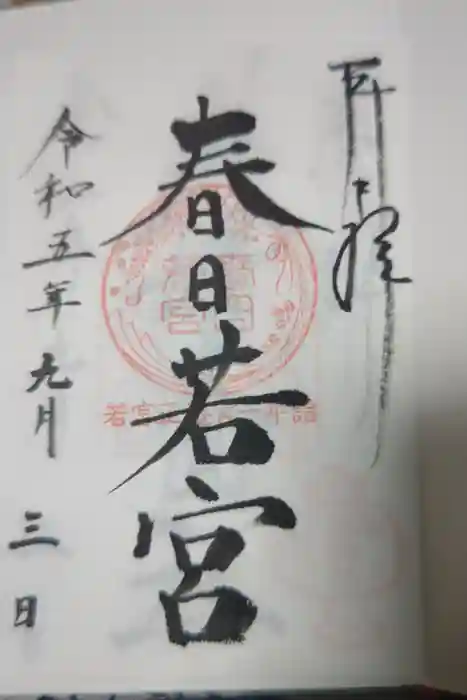 奉拝
春日若宮
令和五年九月三日